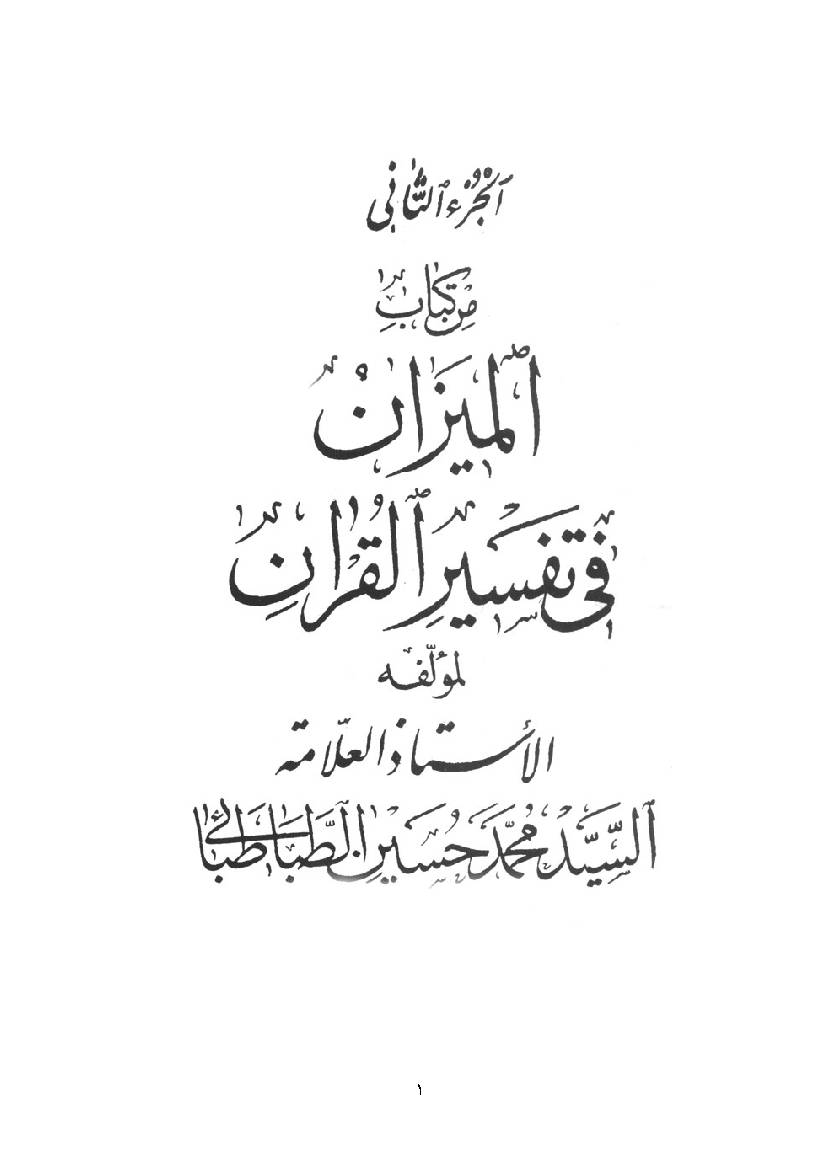 الجزء الثاني
من كتاب
الميزان
في تفسير القرآن
لمؤلفه
الأستاذ العلامة
السيد محمد حسين الطباطبائي
١